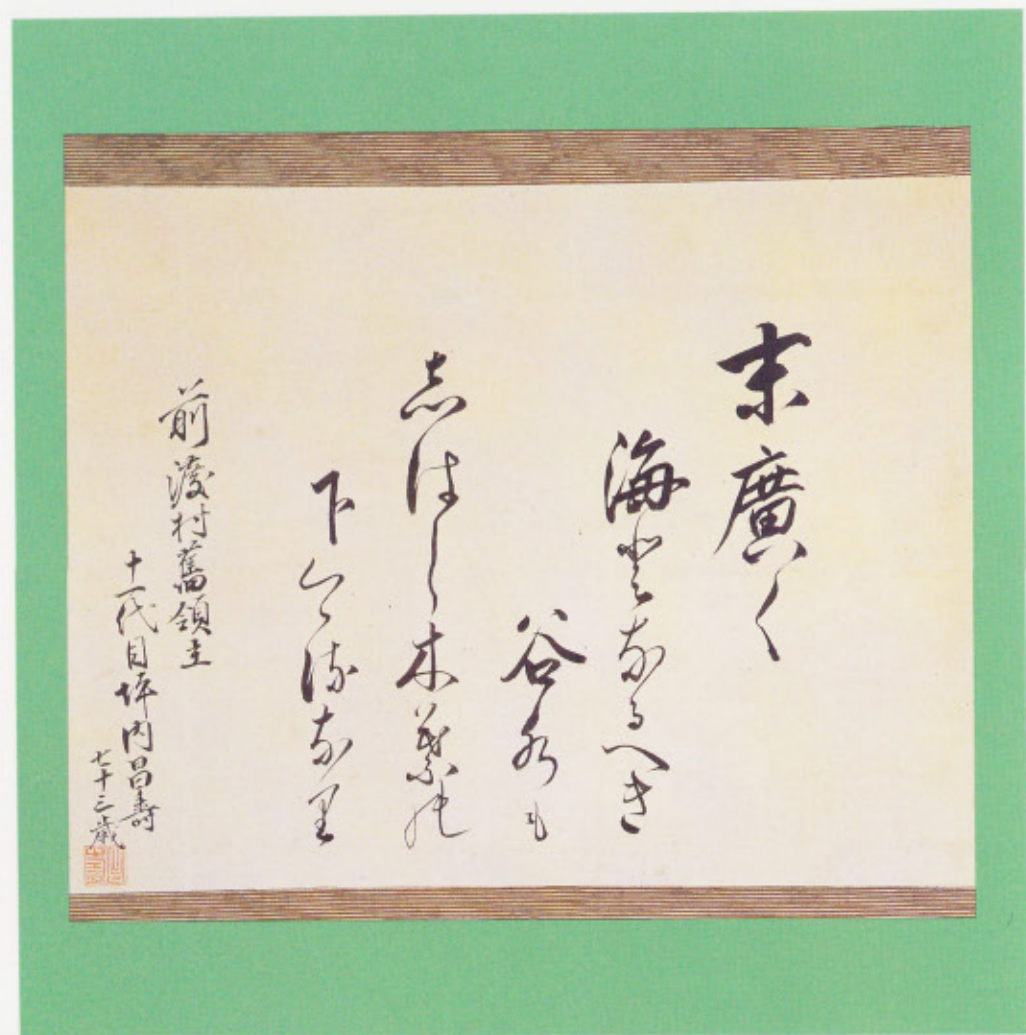 末廣く
海となるへき
谷水も
志はし木葉の
下くゝるなり
前渡村舊領主
十一代目坪内昌壽
七十三歳